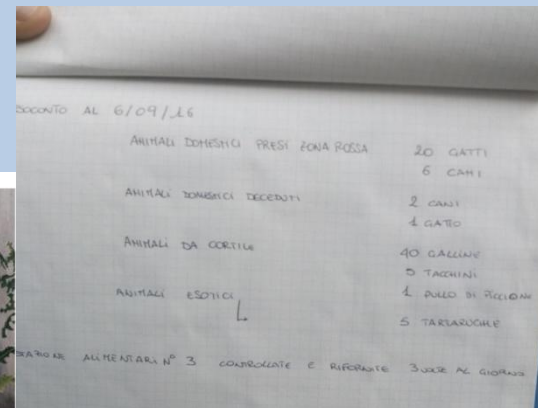 SOCONTO AL 6/09/16
ANIMALI DOMESTICI PRESI ZONA ROSSA 20 GATTI
6 CANI
ANIMALI DOMESTICI DECEDUTI 2 CANI
1 GATTO
ANIMALI DA CORTILE 40 GALLINE
5 TACCHINI
1 PULLO DI PICCIONE
ANIMALI ESOTICI
5 TARTARUGHE
ALIMENTARI N° 3 CONTROLLATE E RIFORNITE 3 VOLTE AL GIORNO